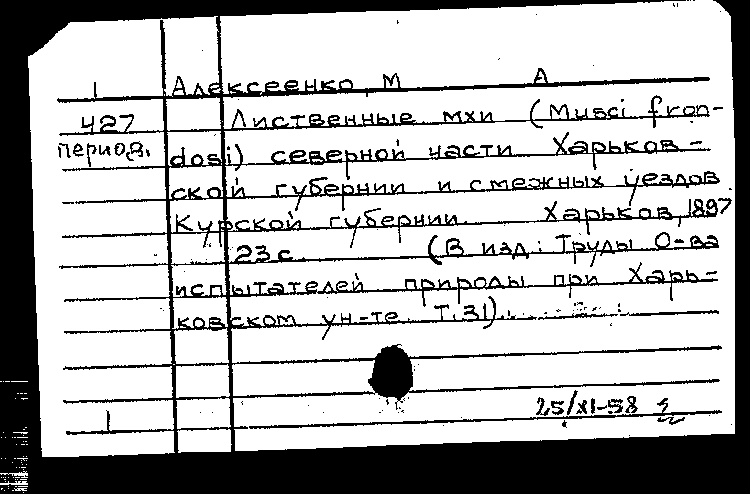 1 Алексеенко, М А
427 Лиственные мхи (Musci fron-
период. dosi) северной части Харьков-
ской губернии и смежных уездов
Курской губернии. Харьков, 1897
23 с. (В изд: Труды О-ва
испытателей природы при Харь-
ковском ун-те. Т. 31).
1 25/XI-58